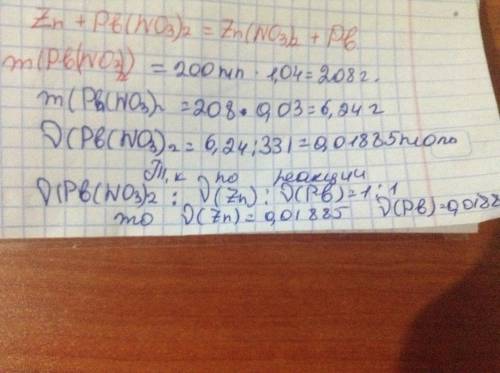 Zn + Pb(NO3)2 = Zn(NO3)2 + Pb
m(Pb(NO3)2) = 200мл · 1,04 = 208 г.
m(Pb(NO3)2 = 208 · 0,03 = 6,24 г
ν(Pb(NO3)2 = 6,24 : 331 = 0,01885 моль
Т.к по реакции
ν(Pb(NO3)2 : ν(Zn) : ν(Pb) = 1 : 1
то ν(Zn) = 0,01885 ν(Pb) = 0,0188